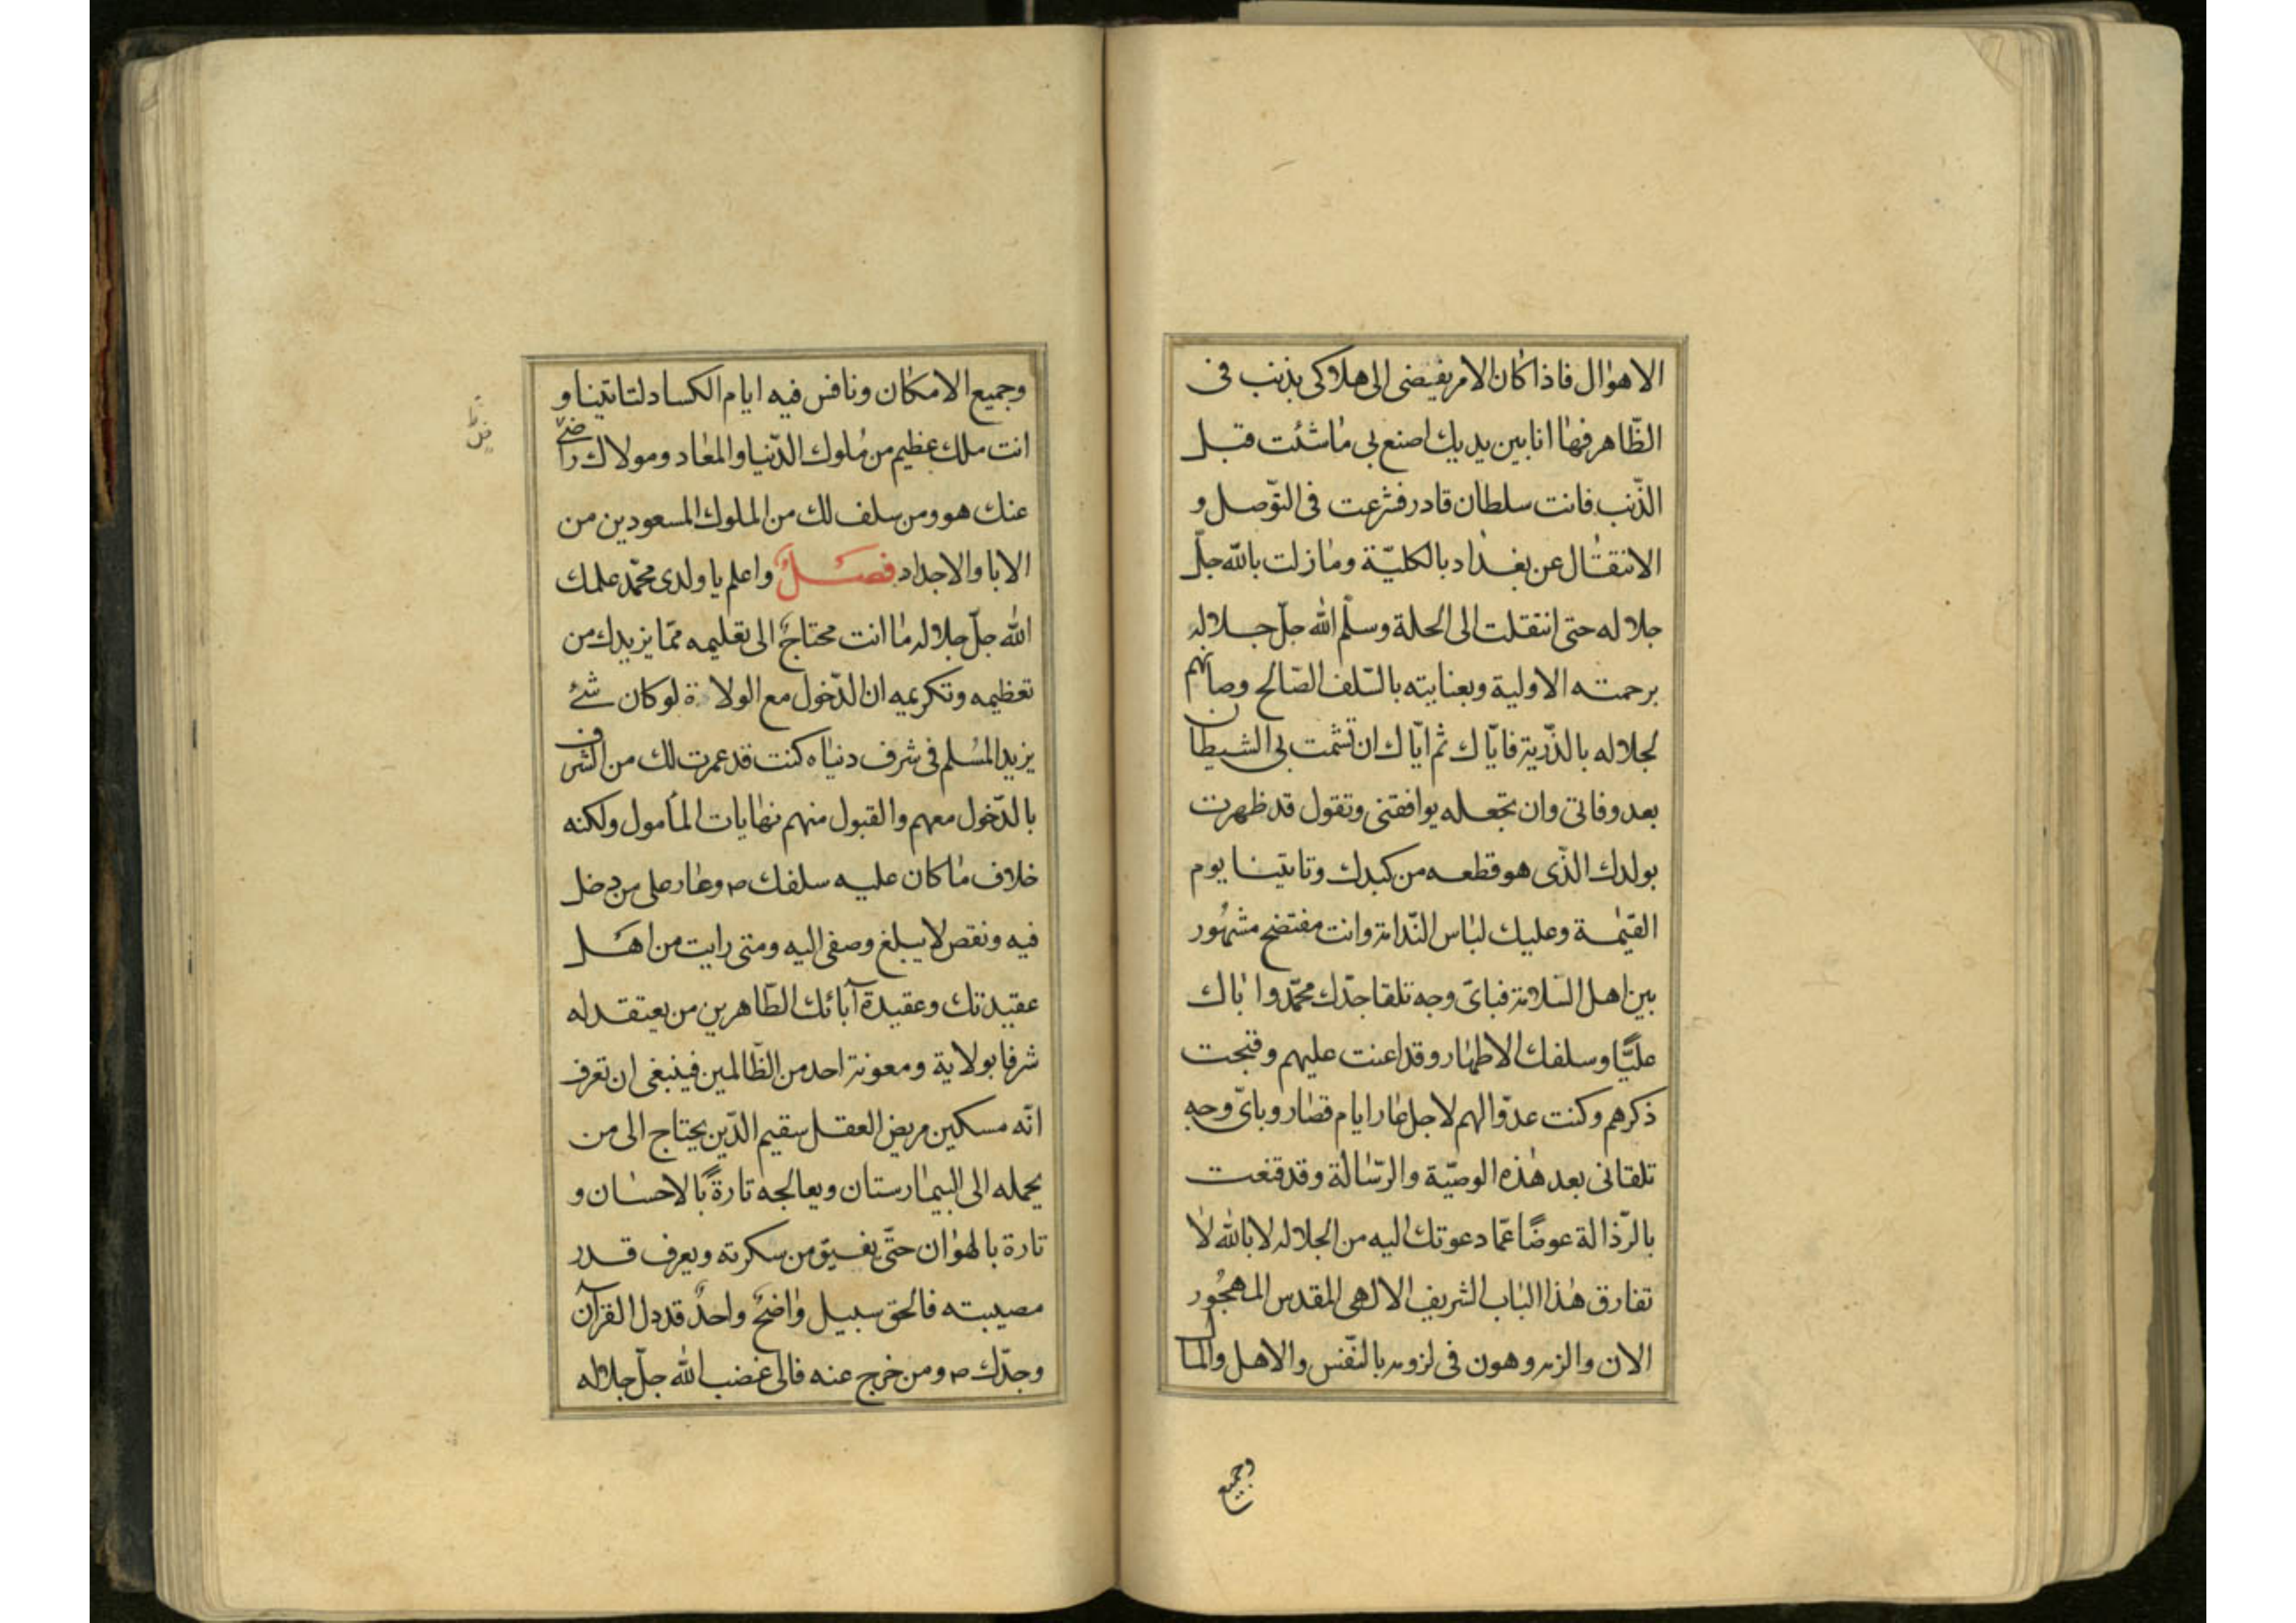 الاهوال فاذا كان الامر يفضى الى هلاكى بذنب فى
الظّاهر فها انا بين يديك اصنع بى ما شئت قبل
الذّنب فانت سلطان قادر فشرعت فى التوّصل و
الانتقال عن بغداد بالكليّة وما زلت بالله جلّ
جلاله حتى انتقلت الى الحلة وسلّم الله جلّ جلاله
برحمته الاولية وبعنايته بالسّلف الصّالح وصانهم
لجلاله بالذّرية فايّاك ثم ايّاك ان تشمت بى الشيطان
بعد وفاتى وان تجعله يوافقنى وتقول قد ظهرت
بولدك الذّى هو قطعه من كبدك وتاتينا يوم
القيٰمة وعليك لباس النّدامة وانت مفتضح مشهُور
بين اهل السّلامة فباىّ وجه تلقا جدّك محمّد واباك
عليًّا وسلفك الاطهار وقد اعنت عليهم وقبحت
ذكرهم وكنت عدوّا لهم لاجل عار ايام قصار وباىّ وجه
تلقانى بعد هٰذه الوصيّة والرّسالة وقد قنعت
بالرّذالة عوضًا عمّا دعوتك اليه من الجلاله لا بالله لا
تفارق هٰذا الباب الشريف الالهى المقدس المهجُور
الان والزمه وهون فى لزومه بالنّفس والاهل والمال
وجميع
وجميع الامكان ونافس فيه ايام الكساد لتاتينا و
انت ملك عظيم من ملوك الدّنيا والمعاد ومولاك راضٍ
عنك هو ومن سلف لك من الملوك المسعودين من
الابا والاجداد فصلٌ واعلم يا ولدى محمّد علمك
الله جلّ جلاله ما انت محتاجٌ الى تعليمه ممّا يزيدك من
تعظيمه وتكريمه ان الدّخول مع الولاة لو كان شئ
يزيد المسلم فى شرف دنياه كنت قد عمرت لك من الشرف
بالدّخول معهم والقبول منهم نهايات المأمول ولكنه
خلاف ما كان عليه سلفك ص وعار على من دخل
فيه ونقص لا يبلغ وصفى اليه ومتى رايت من اهل
عقيدتك وعقيدة آبائك الطّاهرين من يعتقد له
شرفا بولاية ومعونة احد من الظّالمين فينبغى ان تعرف
انّه مسكين مريض العقل سقيم الدّين يحتاج الى من
يحمله الى البيمارستان ويعالجه تارةً بالاحسان و
تارة بالهوان حتّى يفيق من سكرته ويعرف قدر
مصيبته فالحق سبيل واضحٌ واحدٌ قد دل القرآن
وجدّك ص ومن خرج عنه فالى غضب الله جلّ جلاله